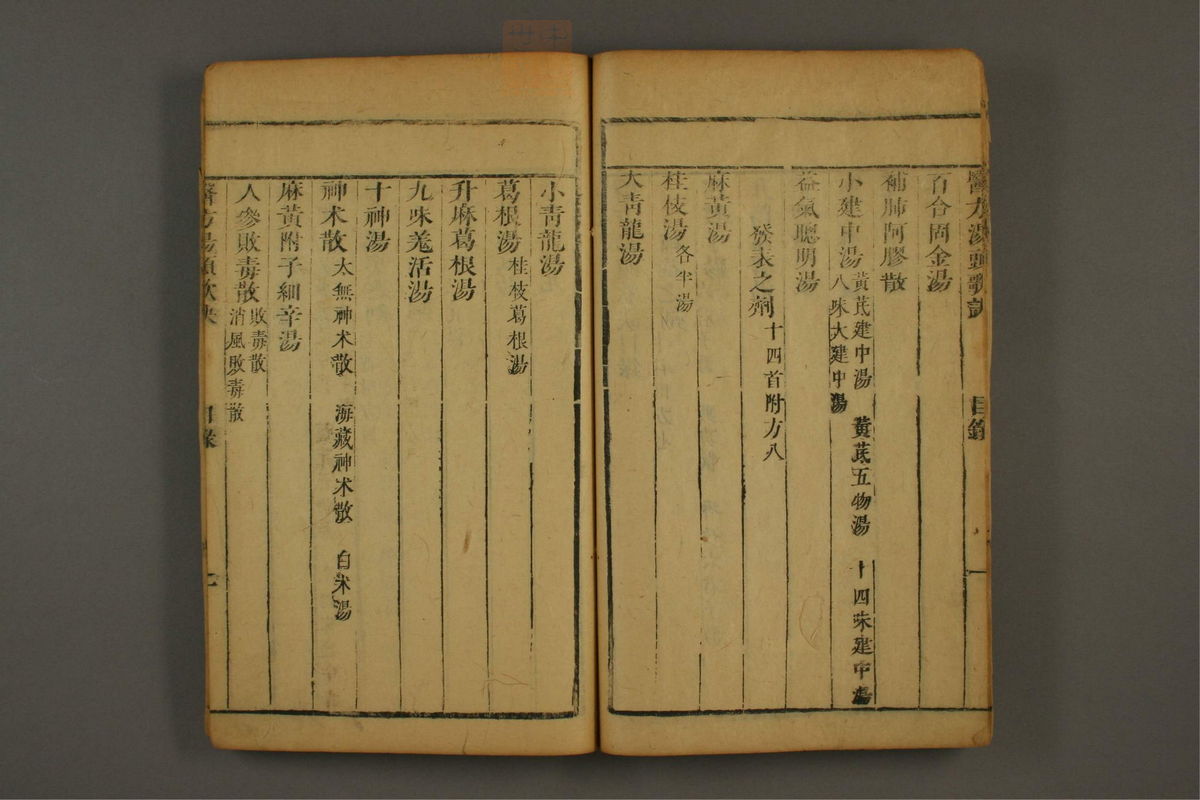 醫方湯頭歌訣 目錄 一
百合固金湯
補肺阿膠散
小建中湯 黃芪建中湯 黃芪五物湯 十四味建中湯
八味大建中湯
益氣聰明湯
發表之劑 十四首附方八
麻黃湯
桂枝湯 各半湯
大青龍湯
小青龍湯
葛根湯 桂枝葛根湯
升麻葛根湯
九味羌活湯
十神湯
神术散 太無神术散 海藏神术散 白术湯
麻黃附子細辛湯
人參敗毒散 敗毒散
消風敗毒散
醫方湯頭歌訣 目錄